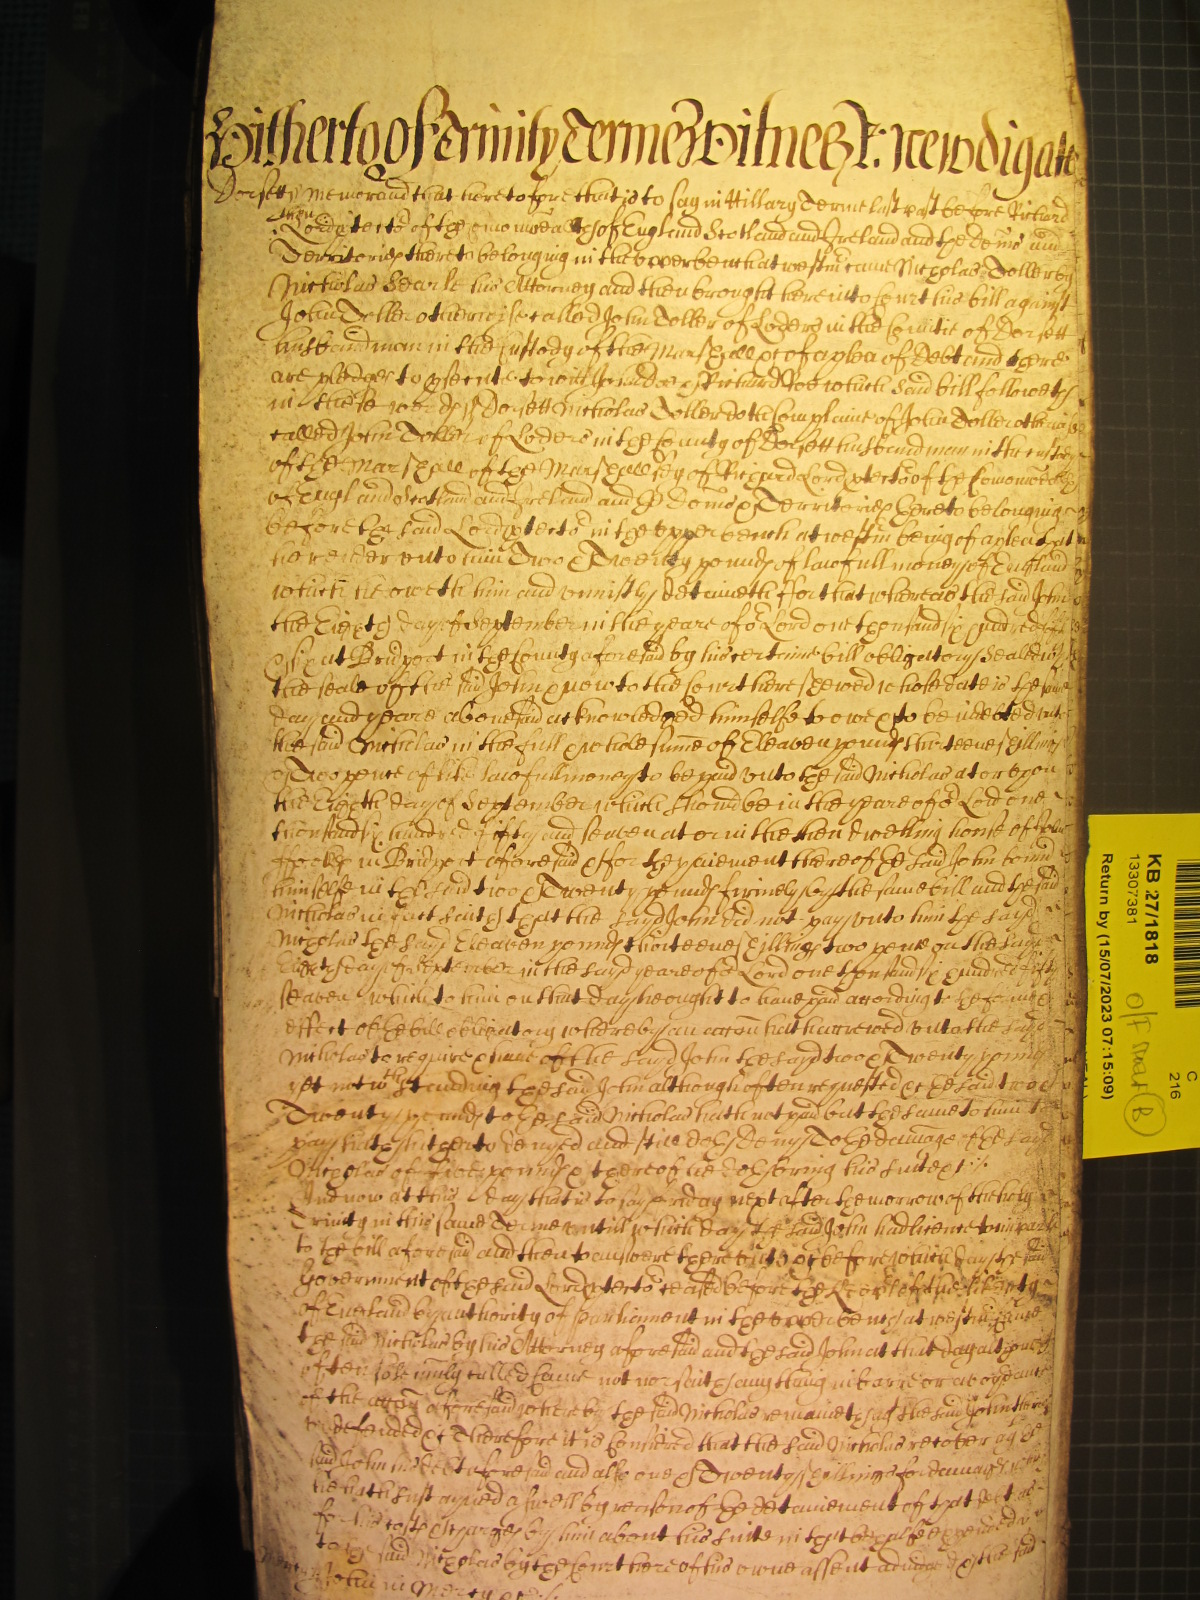 Hitherto of Trinity Terme Witnes R: Newdigate
Dorsett Memorand that heretofore that is to say in Hillary Terme last past before Richard
then Lord ptector of the comonwealth of England Scotland and Ireland and the domi and
Territories thereto belonging in the upper bench at westm came Nicholas Toller by
Nicholas Searle his Attorney and then brought here into Court his bill against
John Toller otherwise called John Toller of Loders in the Countie of Dorsett
husbandman in the custody of the Marshall &c of a plea of Debt and there
are pledges to psecute to witt John Doe & Richard Roe which said bill followeth
in these words Dorsett Nicholas Toller doth Complaine of John Toller otherwise
called John Toller of Loders in the County of Dorsett husbandman in the custody
of the Marshall of the Marshallsey of Richard Lord ptector of the Comonwealth
of England Scotland and Ireland and the Domis & Territories thereto belonging
before the said Lord ptector in the upper bench at westm being of a plea that
he render unto him Two & Twenty pounds of lawfull money of England
which he oweth him and uniustly detaineth for that whereas the said John
the Eighth day of September in the yeare of or Lord one thousand six hundred fifty
& six at Bridport in the County aforesaid by his certaine bill obligatory Sealed with
the seale of the said John & now to the Court here shewed whose date is the same
day and yeare abovesaid acknowledged himselfe to owe & to be indebted unto
the said Nicholas in the full & whole sume of Eleaven pounds thirteene shillings
& Two pence of like lawfull money to be paid unto the said Nicholas at or upon
the Eighth day of September which should be in the yeare of or Lord one
thousand six hundred fifty and seaven at or in the then dwelling house of
in Bridport aforesaid & for the paiement thereof the said John bound
himselfe in the said two & Twenty pounds firmely by the same bill and the said
Nicholas in fact saith that the said John did not pay unto him the sayd
Nicholas the sayd Eleaven pounds thirteene shillings two pence on the sayd
Eighth day of September in the sayd yeare of or Lord one thousand six hundred fifty
seaven which to him on that day he ought to have paid according to the forme &
effect of the bill obligatory whereby an accon hath accrewed unto the sayd
Nicholas to require & have of the sayd John the sayd two & Twenty pounds
yet notwthstanding the said John although often requested &c the said two &
Twenty pounds to the said Nicholas hath not paid but the same to him to
pay hath hitherto denyed and still doth deny To the damage of the sayd
Nicholas of five pounds & thereof he doth bring his suite &c
And now at this day that is to say Friday next after the morrow of the holy
Trinity in this same Terme untill which day the said John had licence to imparle
to the bill aforesaid and then to answere thereunto &c before which day the said
Government of the said Lord ptector ceased before the Keepers of the liberty
of England by authority of Parliament in the upper bench at westm came
the said Nicholas by his Attorney aforesaid and the said John at that day although
often solemnly called came not nor saith any thing in barre or avoydance
of the accon aforesaid whereby the said Nicholas remaineth agt the said John therein
undefended &c Therefore it is Considered that the said Nicholas recover agt the
said John his debt aforesaid and also one & Twenty shillings for damages which
he hath susteyned aswell by reason of the detainement of that debt as
for his costs & charges by him about his suite in that behalfe expended
to the said Nicholas by the Court here of his owne assent adiudged & the said
John in Mercy &c
KB 27/1818
13307381
Return by (15/07/2023 07:15:09)
C
216